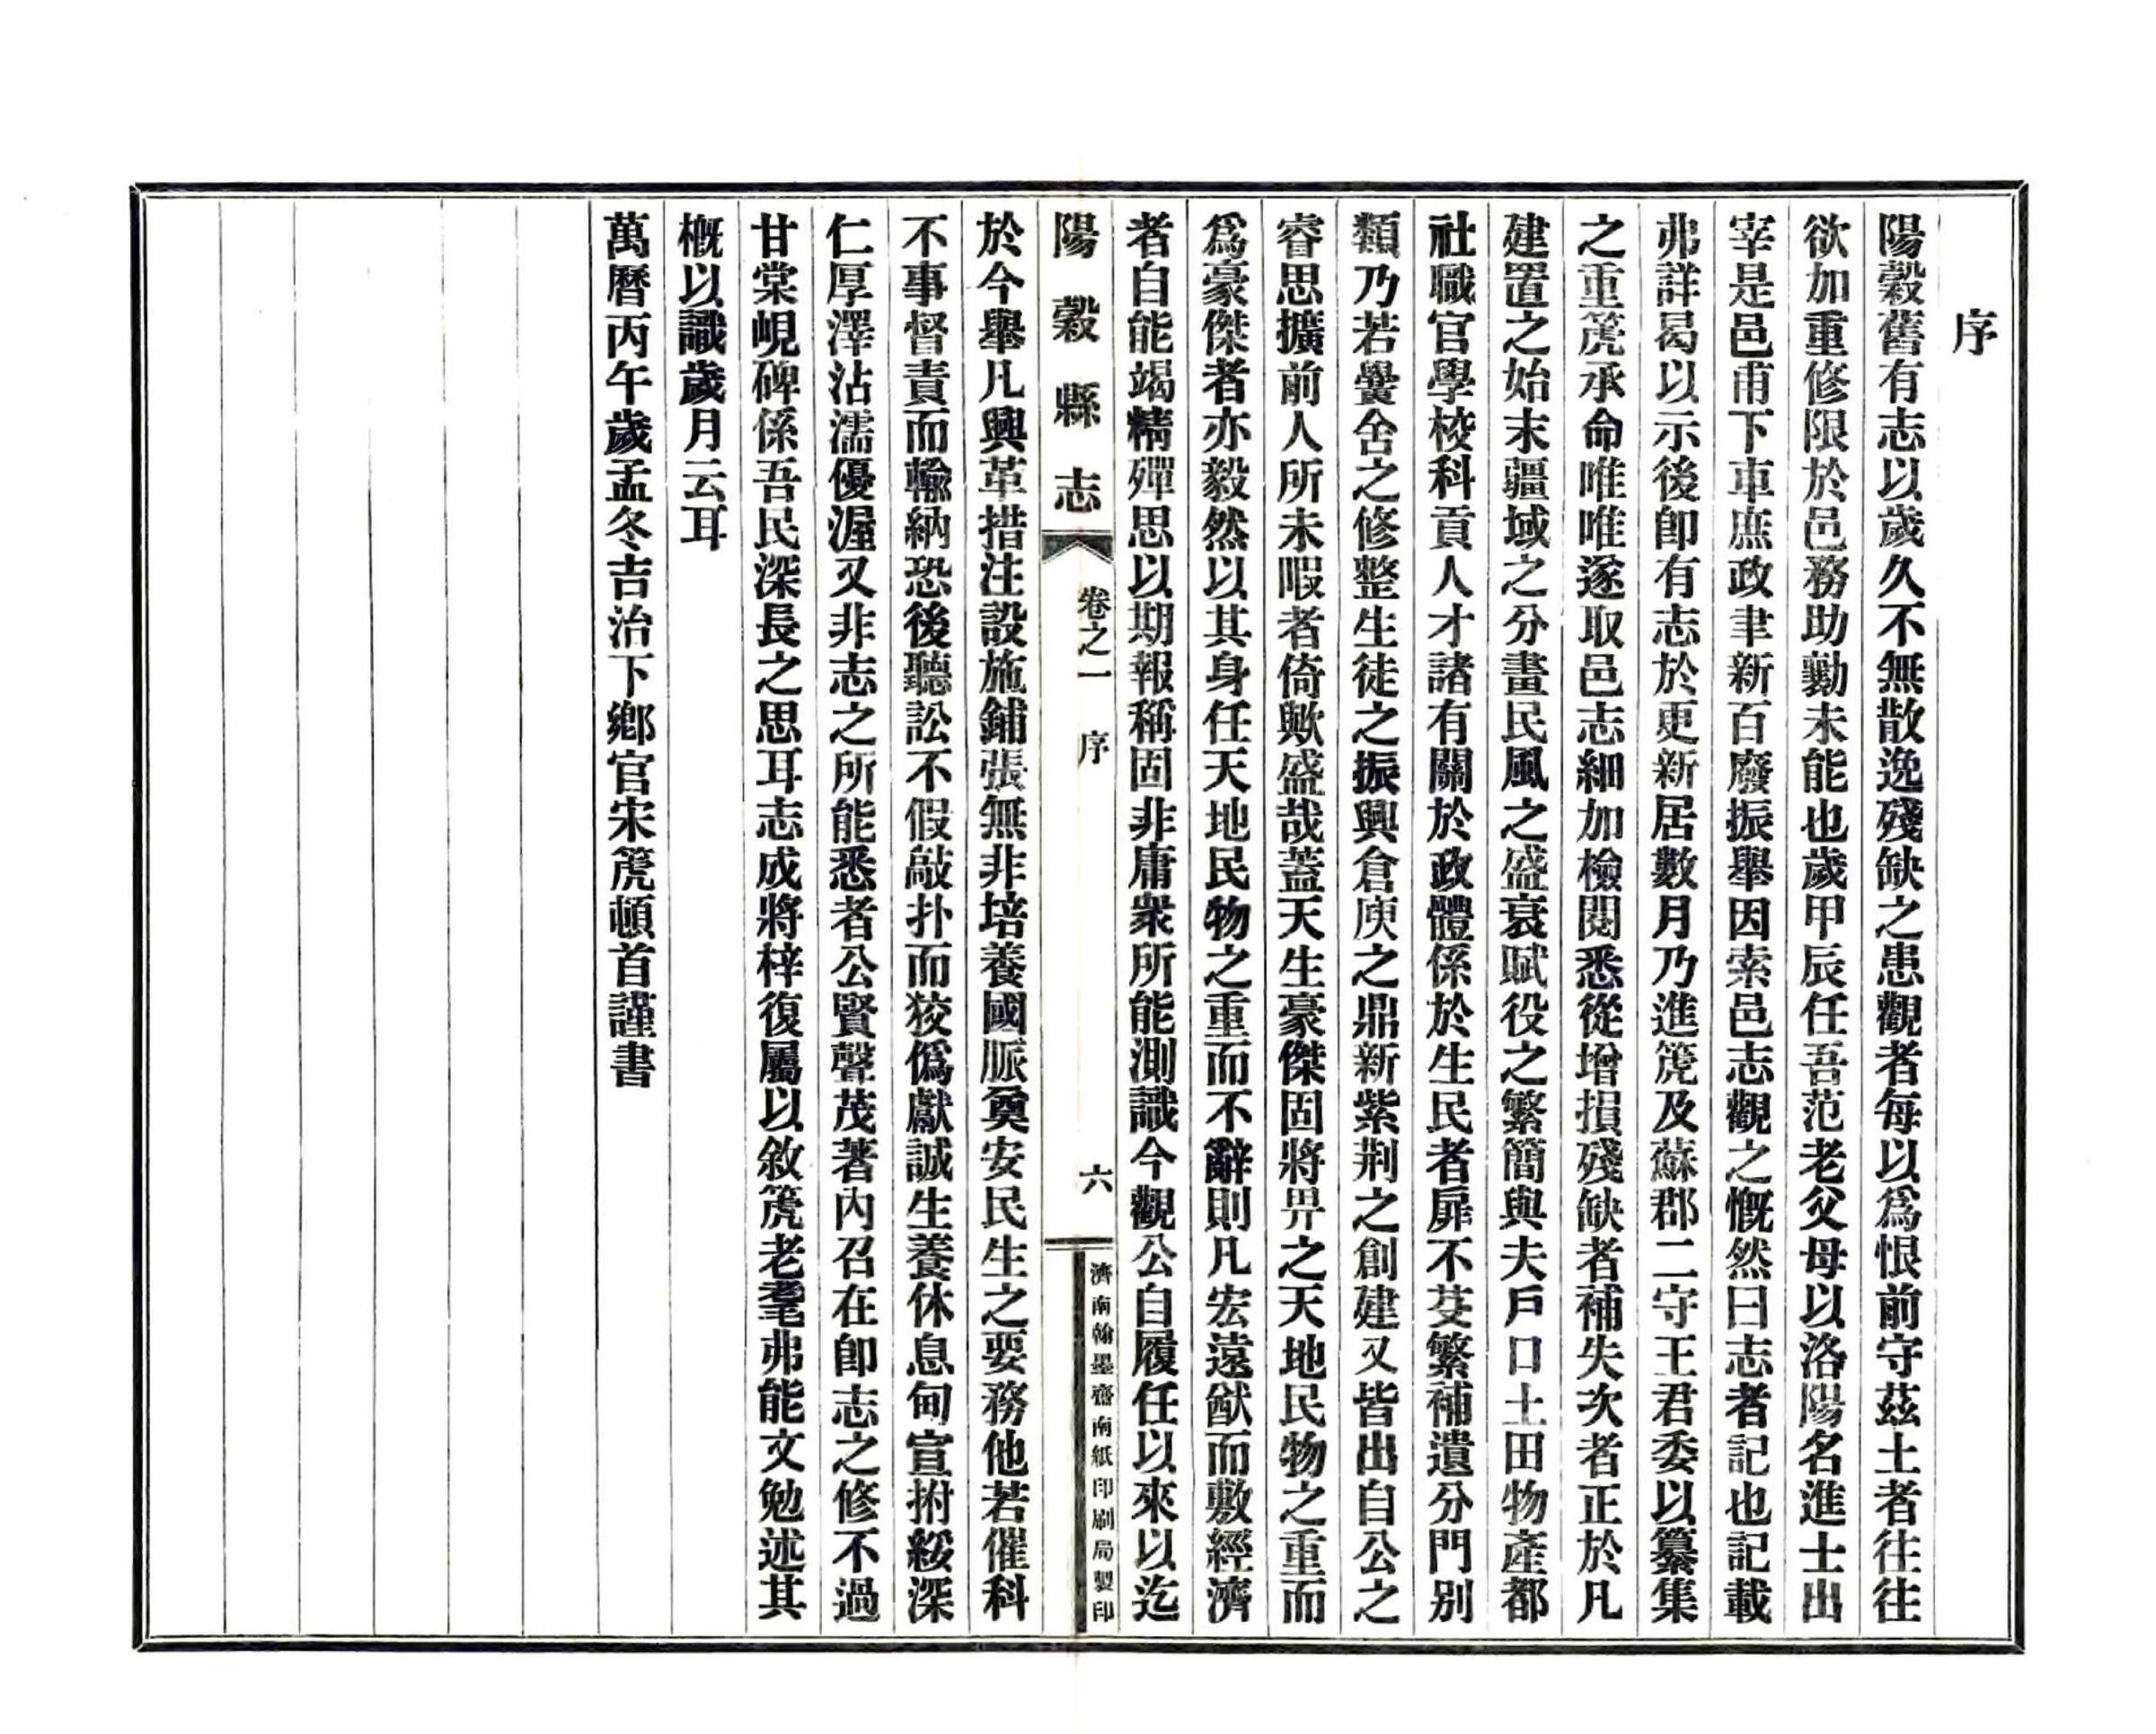 序
陽穀舊有志以歲久不無散逸殘缺之患觀者每以爲恨前守茲土者往往
欲加重修限於邑務助勷未能也歲甲辰任吾范老父母以洛陽名進士出
宰是邑甫下車庶政聿新百廢振舉因索邑志觀之慨然曰志者記也記載
弗詳曷以示後卽有志於更新居數月乃進箎及蘇郡二守王君委以纂集
之重箎承命唯唯遂取邑志細加檢閱悉從增損殘缺者補失次者正於凡
建置之始末疆域之分畫民風之盛衰賦役之繁簡與夫戶口土田物產都
社職官學校科貢人才諸有關於政體係於生民者靡不芟繁補遺分門別
類乃若黌舍之修整生徒之振興倉庾之鼎新紫荆之創建又皆出自公之
睿思擴前人所未暇者倚歟盛哉蓋天生豪傑固將畀之天地民物之重而
爲豪傑者亦毅然以其身任天地民物之重而不辭則凡宏遠猷而敷經濟
者自能竭精殫思以期報稱固非庸衆所能測識今觀公自履任以來以迄
陽穀縣志
卷之一 序
六
濟南翰墨齋南紙印刷局製印
於今舉凡興革措注設施鋪張無非培養國脈奠安民生之要務他若催科
不事督責而輸納恐後聽訟不假敲扑而狡僞獻誠生養休息旬宣拊綏深
仁厚澤沾濡優渥又非志之所能悉者公賢聲茂著內召在卽志之修不過
甘棠峴碑係吾民深長之思耳志成將梓復屬以敘箎老耄弗能文勉述其
槪以識歲月云耳
萬曆丙午歲孟冬吉治下鄉官宋箎頓首謹書